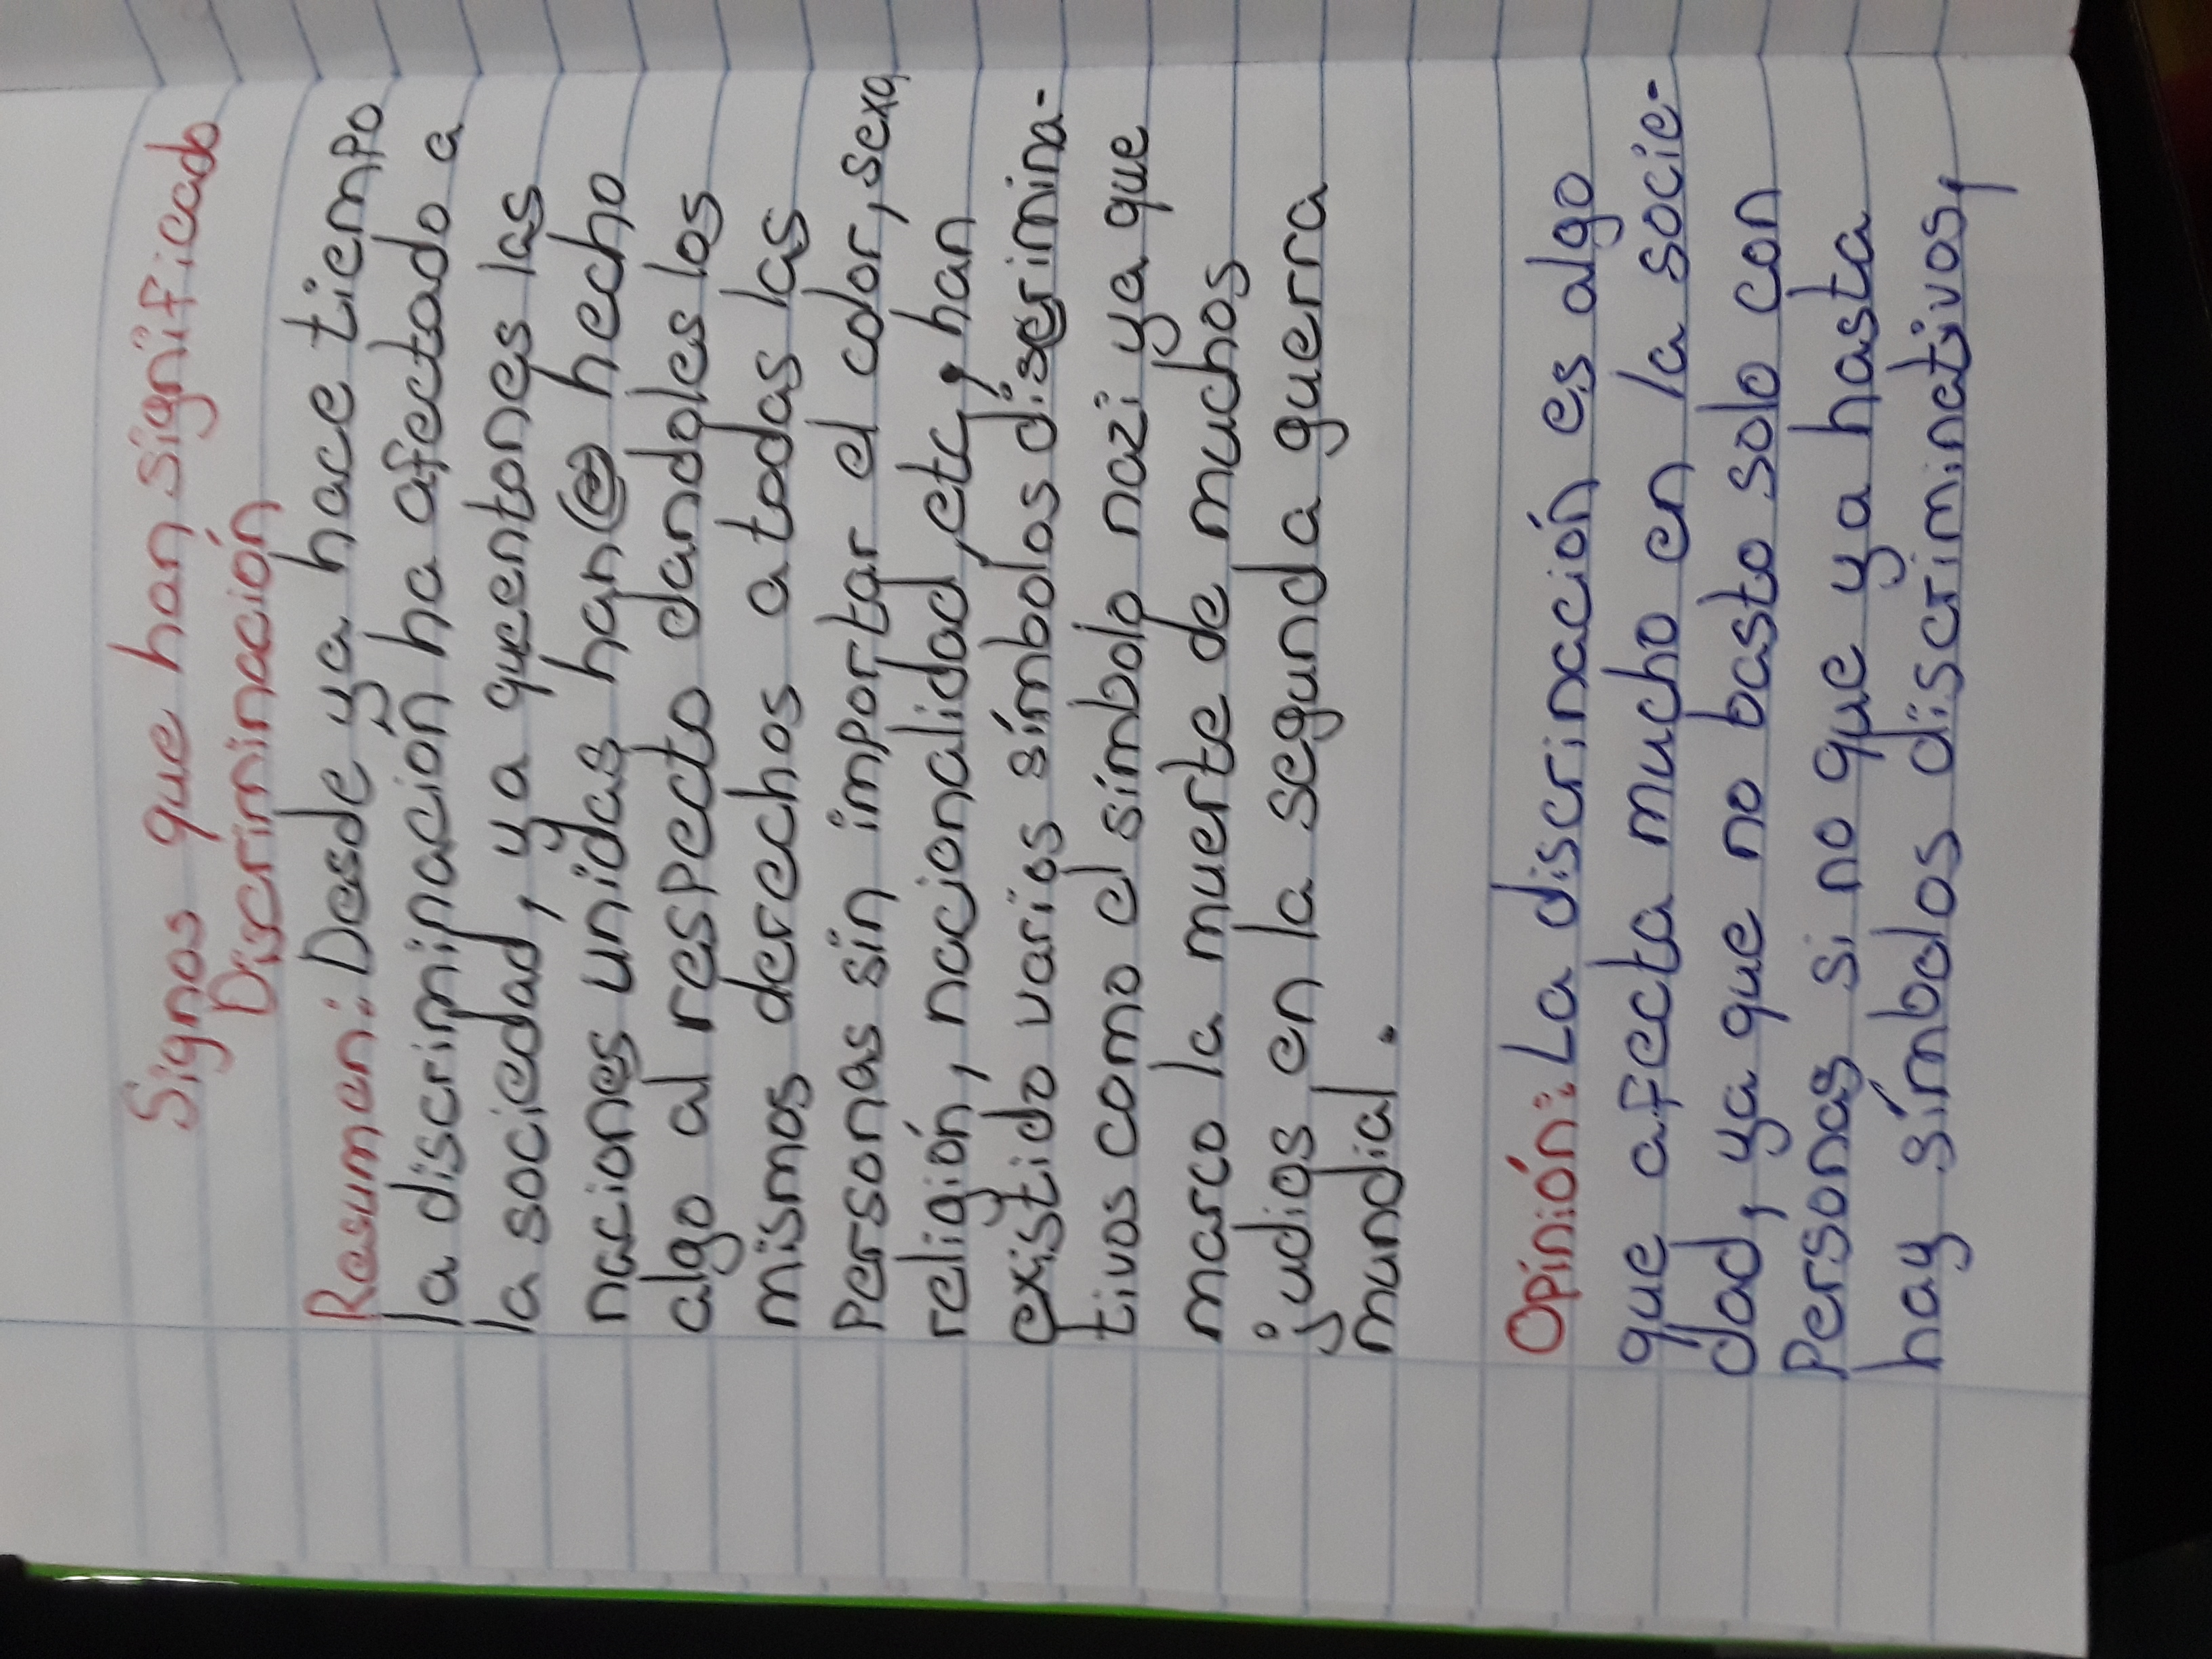 Signos que han significado
Discriminación
Resumen: Desde ya hace tiempo
la discriminación ha afectado a
la sociedad, ya que entones las
naciones unidas han hecho
algo al respecto dandoles los
mismos derechos a todas las
personas sin importar el color, sexo,
religión, nacionalidad, etc, han
existido varios símbolos discrimina-
tivos como el símbolo nazi ya que
marco la muerte de muchos
judios en la segunda guerra
mundial.
Opinión: La discrinación es algo
que afecta mucho en la socie-
dad, ya que no basto solo con
Personas si no que ya hasta
hay símbolos discriminativos,